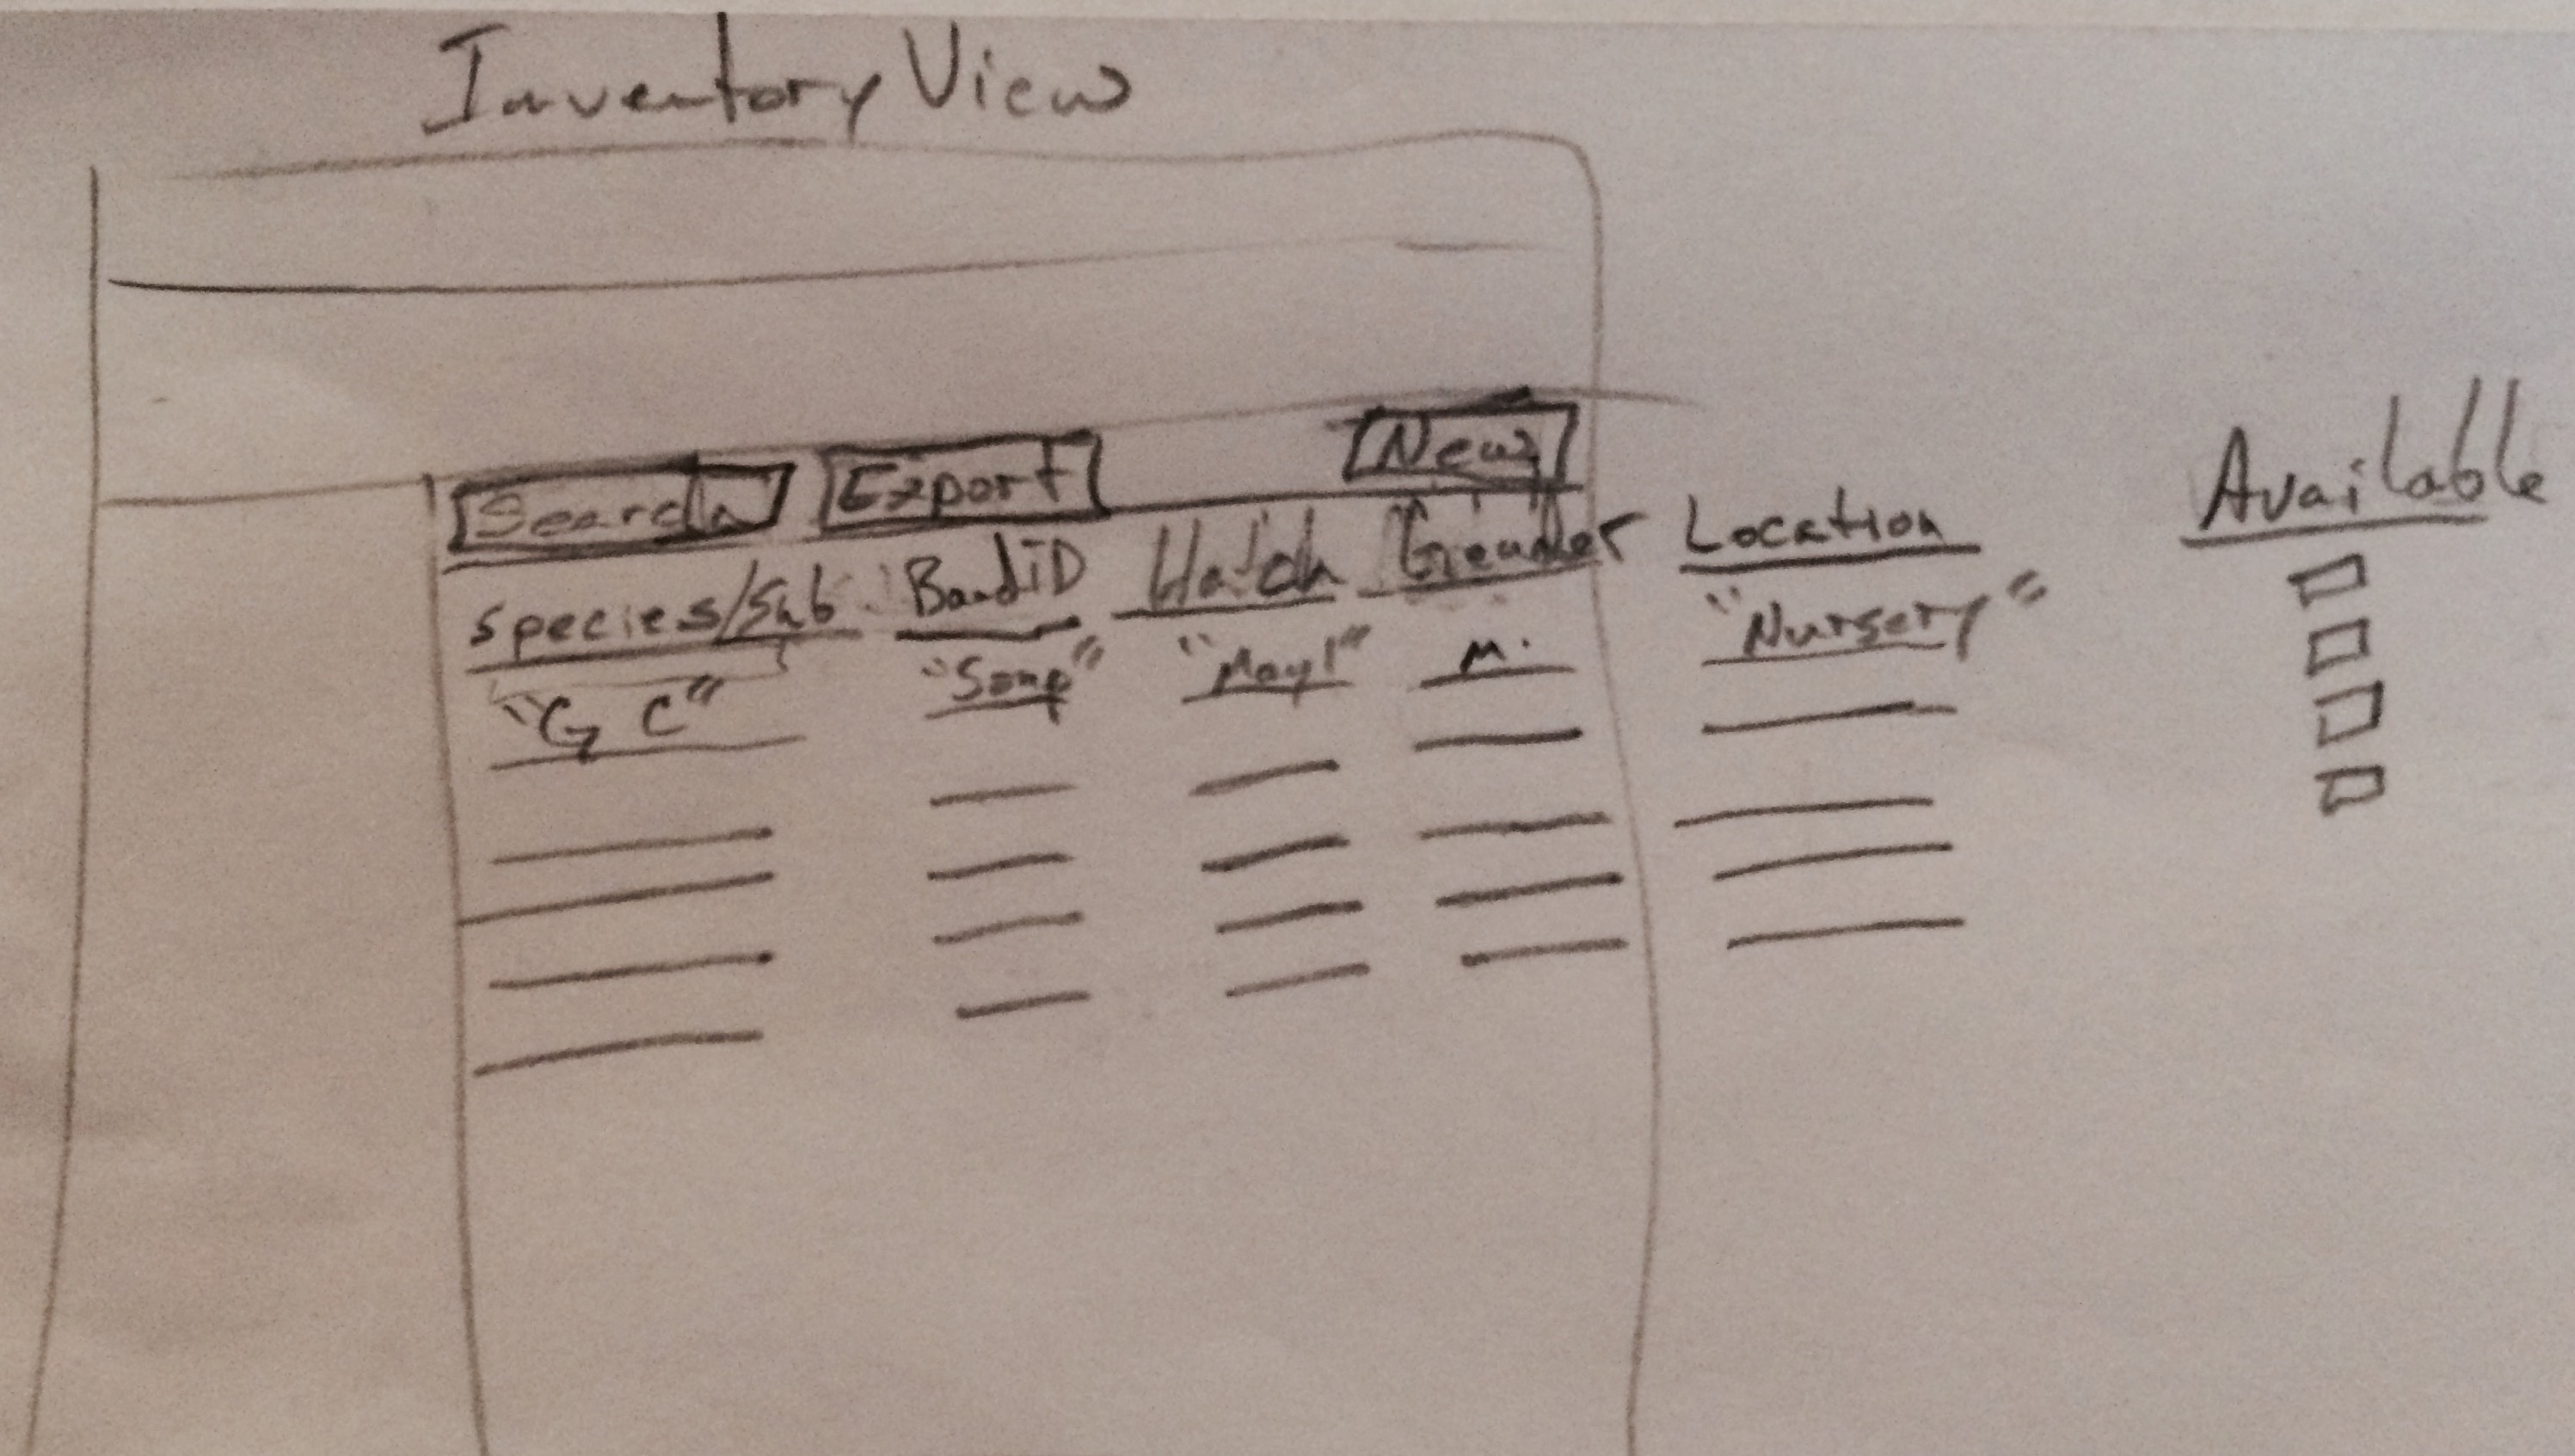 Inventory View
Search Export New
Species/Sub BandID Hatch Gender Location Available
"G C" "May 1" M. "Nursery"